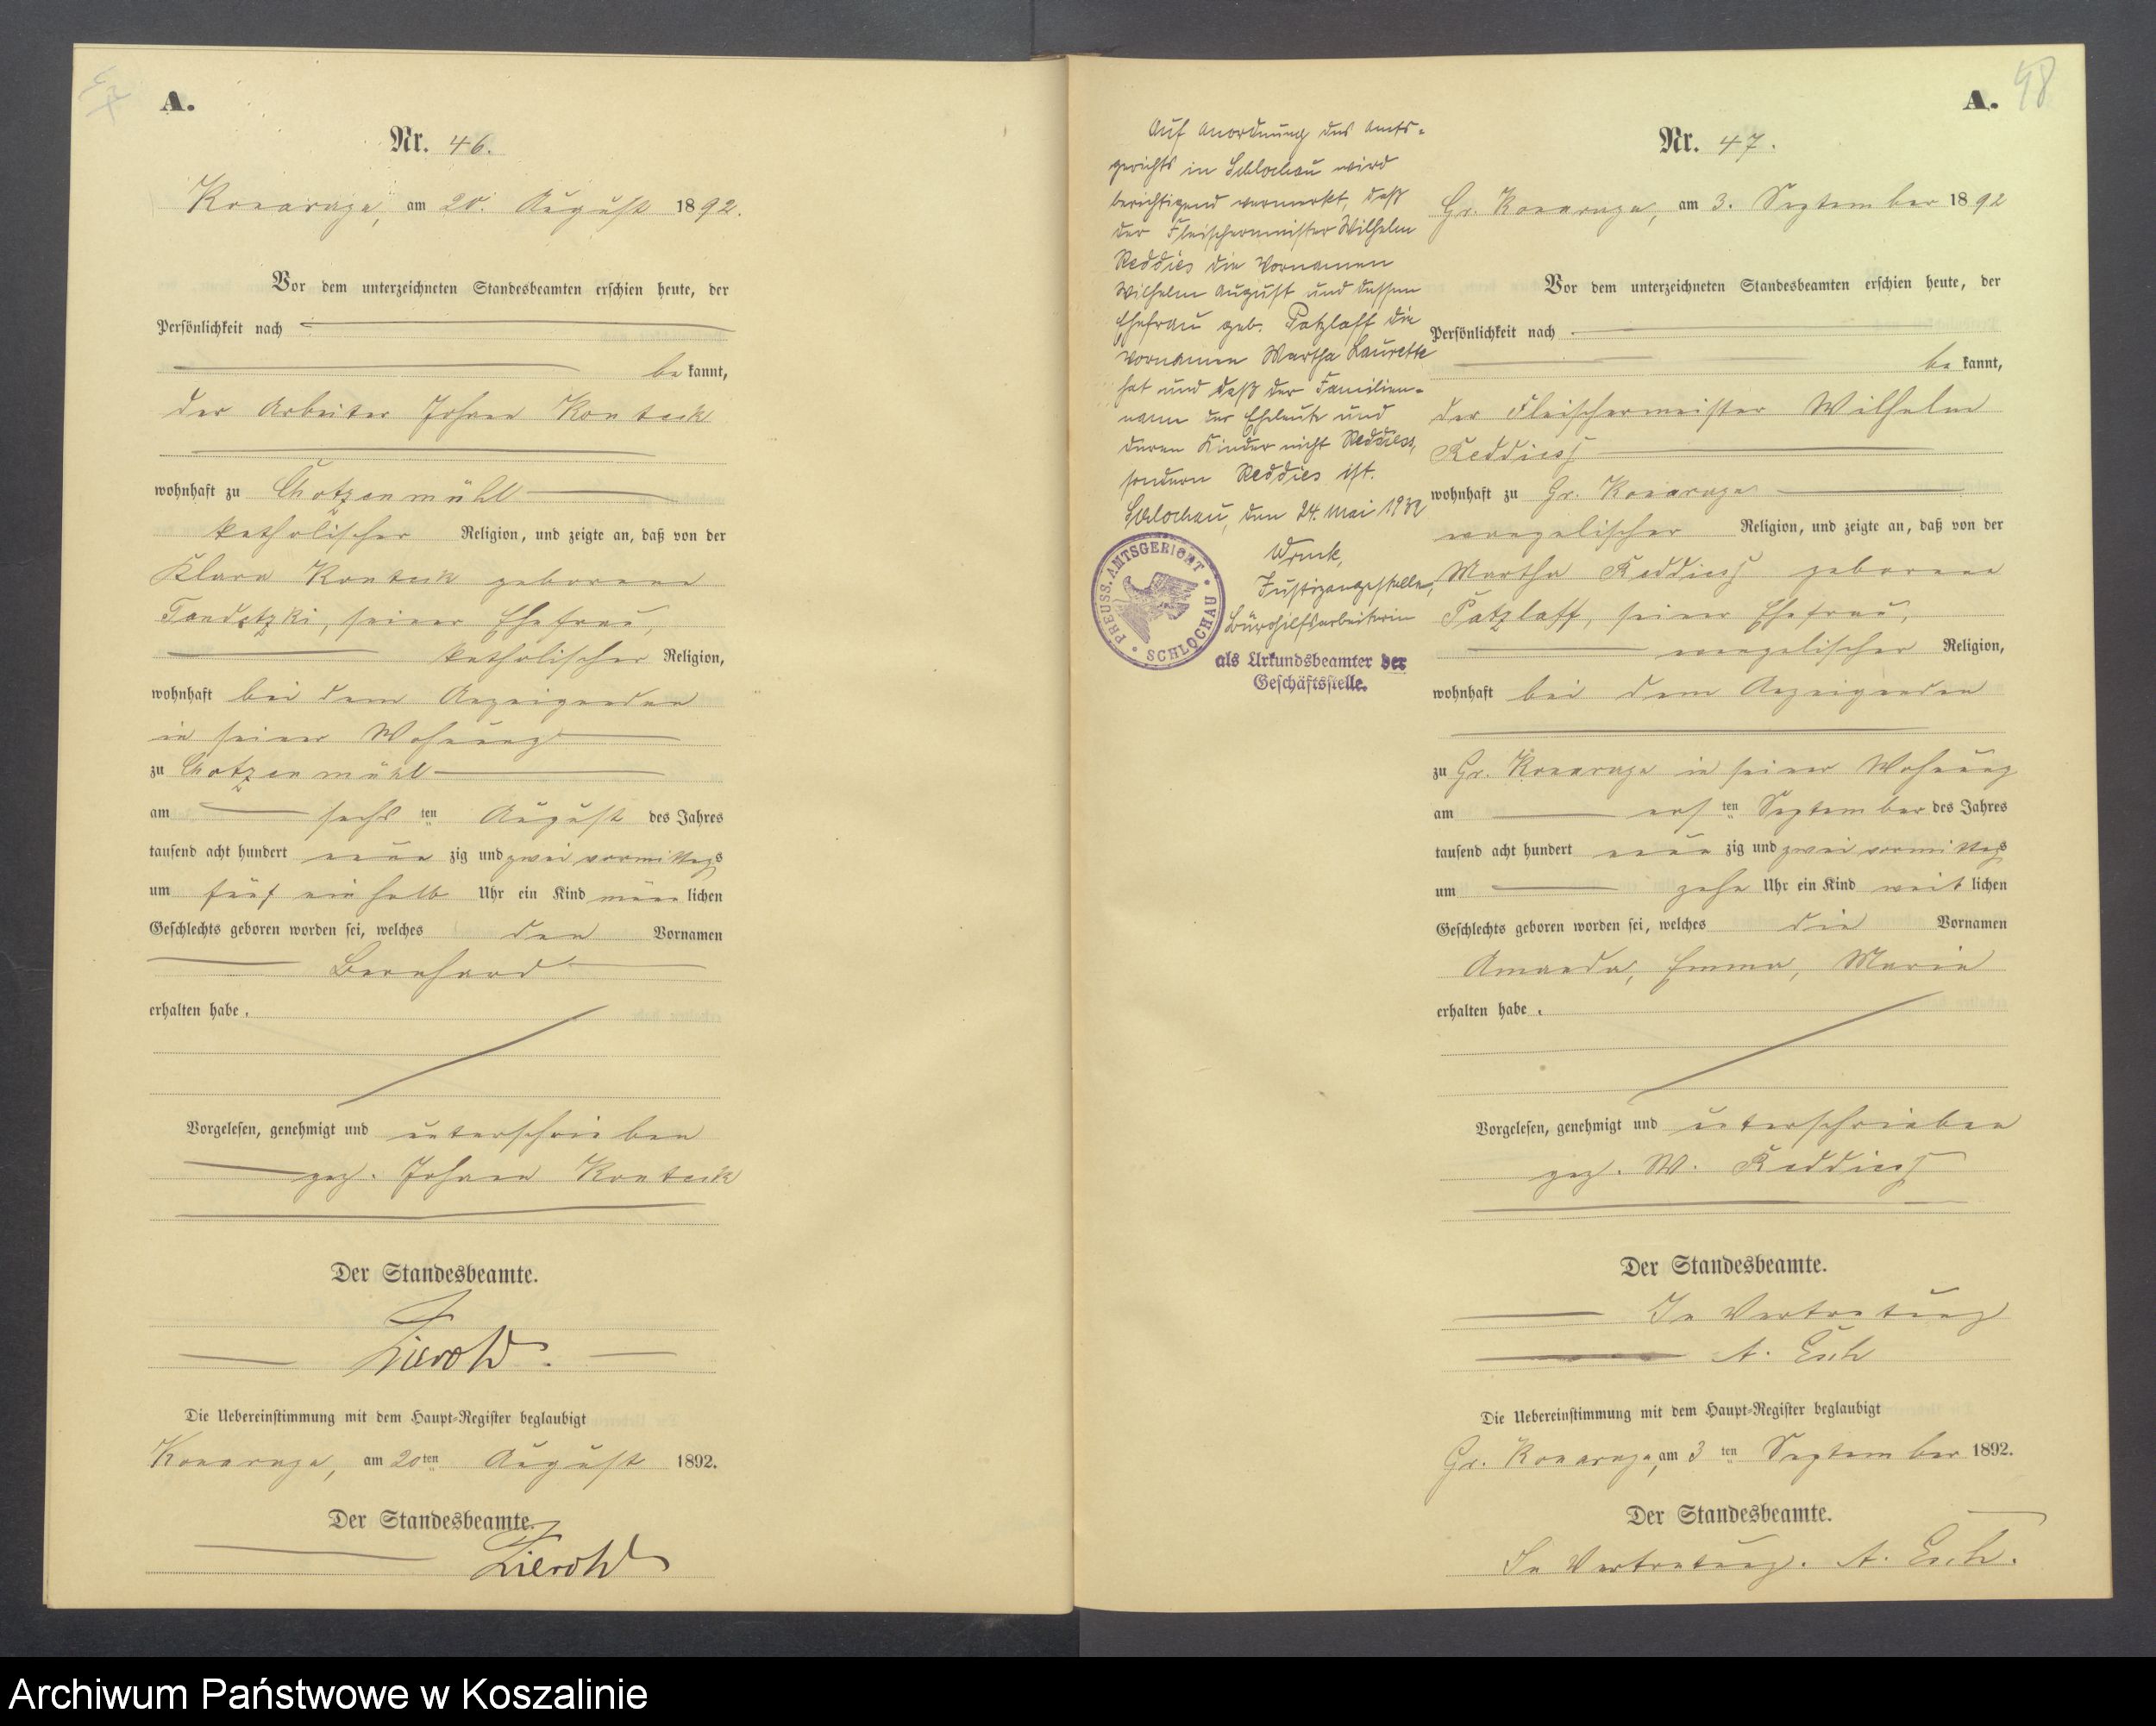 A.
Nr. 46.
Konarzyn, am 20. August 1892.
Vor dem unterzeichneten Standesbeamten erschien heute, der
Persönlichkeit nach
be kannt,
der Arbeiter Johann Konteck
wohnhaft zu Chotzenmühl
katholischer Religion, und zeigte an, daß von der
Klara Konteck geborene
seiner Ehefrau,
katholischer Religion,
wohnhaft bei dem Anzeigenden
in seiner Wohnung
zu Chotzenmühl
am sechs ten August des Jahres
tausend acht hundert neun zig und zwei vormittags
um fünf ein halb Uhr ein Kind männ lichen
Geschlechts geboren worden sei, welches den Vornamen
Bernhard
erhalten habe.
Vorgelesen, genehmigt und unterschrieben
gez. Johann Konteck
Der Standesbeamte.
Die Uebereinstimmung mit dem Haupt-Register beglaubigt
Konarzyn, am 20ten August 1892.
Der Standesbeamte.
Auf Anordnung des Amts-
gerichts in Schlochau wird
berichtigend vermerkt, daß
der Fleischermeister Wilhelm
Reddies die Vornamen
Wilhelm August und dessen
Ehefrau geb. Patzlaff die
Vornamen Martha Laurette
hat und daß der Familien-
name der Eheleute und
deren Kinder nicht Reddiess,
sondern Reddies ist.
Schlochau, den 24. Mai 1932
Justizangestellte,
Bürohilfsarbeiterin
als Urkundsbeamter der
Geschäftsstelle.
PREUSS. AMTSGERICHT
SCHLOCHAU
A. 48
Nr. 47.
Gr. Konarzyn, am 3. September 1892
Vor dem unterzeichneten Standesbeamten erschien heute, der
Persönlichkeit nach
be kannt,
der Fleischermeister Wilhelm
Reddiess
wohnhaft zu Gr. Konarzyn
evangelischer Religion, und zeigte an, daß von der
Martha Reddiess geborene
Patzlaff, seiner Ehefrau,
evangelischer Religion,
wohnhaft bei dem Anzeigenden
zu Gr. Konarzyn in seiner Wohnung
am ers ten September des Jahres
tausend acht hundert neun zig und zwei vormittags
um zehn Uhr ein Kind weib lichen
Geschlechts geboren worden sei, welches die Vornamen
Amanda, Emma, Marie
erhalten habe.
Vorgelesen, genehmigt und unterschrieben
gez. W. Reddiess
Der Standesbeamte.
In Vertretung
A.
Die Uebereinstimmung mit dem Haupt-Register beglaubigt
Gr. Konarzyn, am 3 ten September 1892.
Der Standesbeamte.
In Vertretung. A.
Archiwum Państwowe w Koszalinie